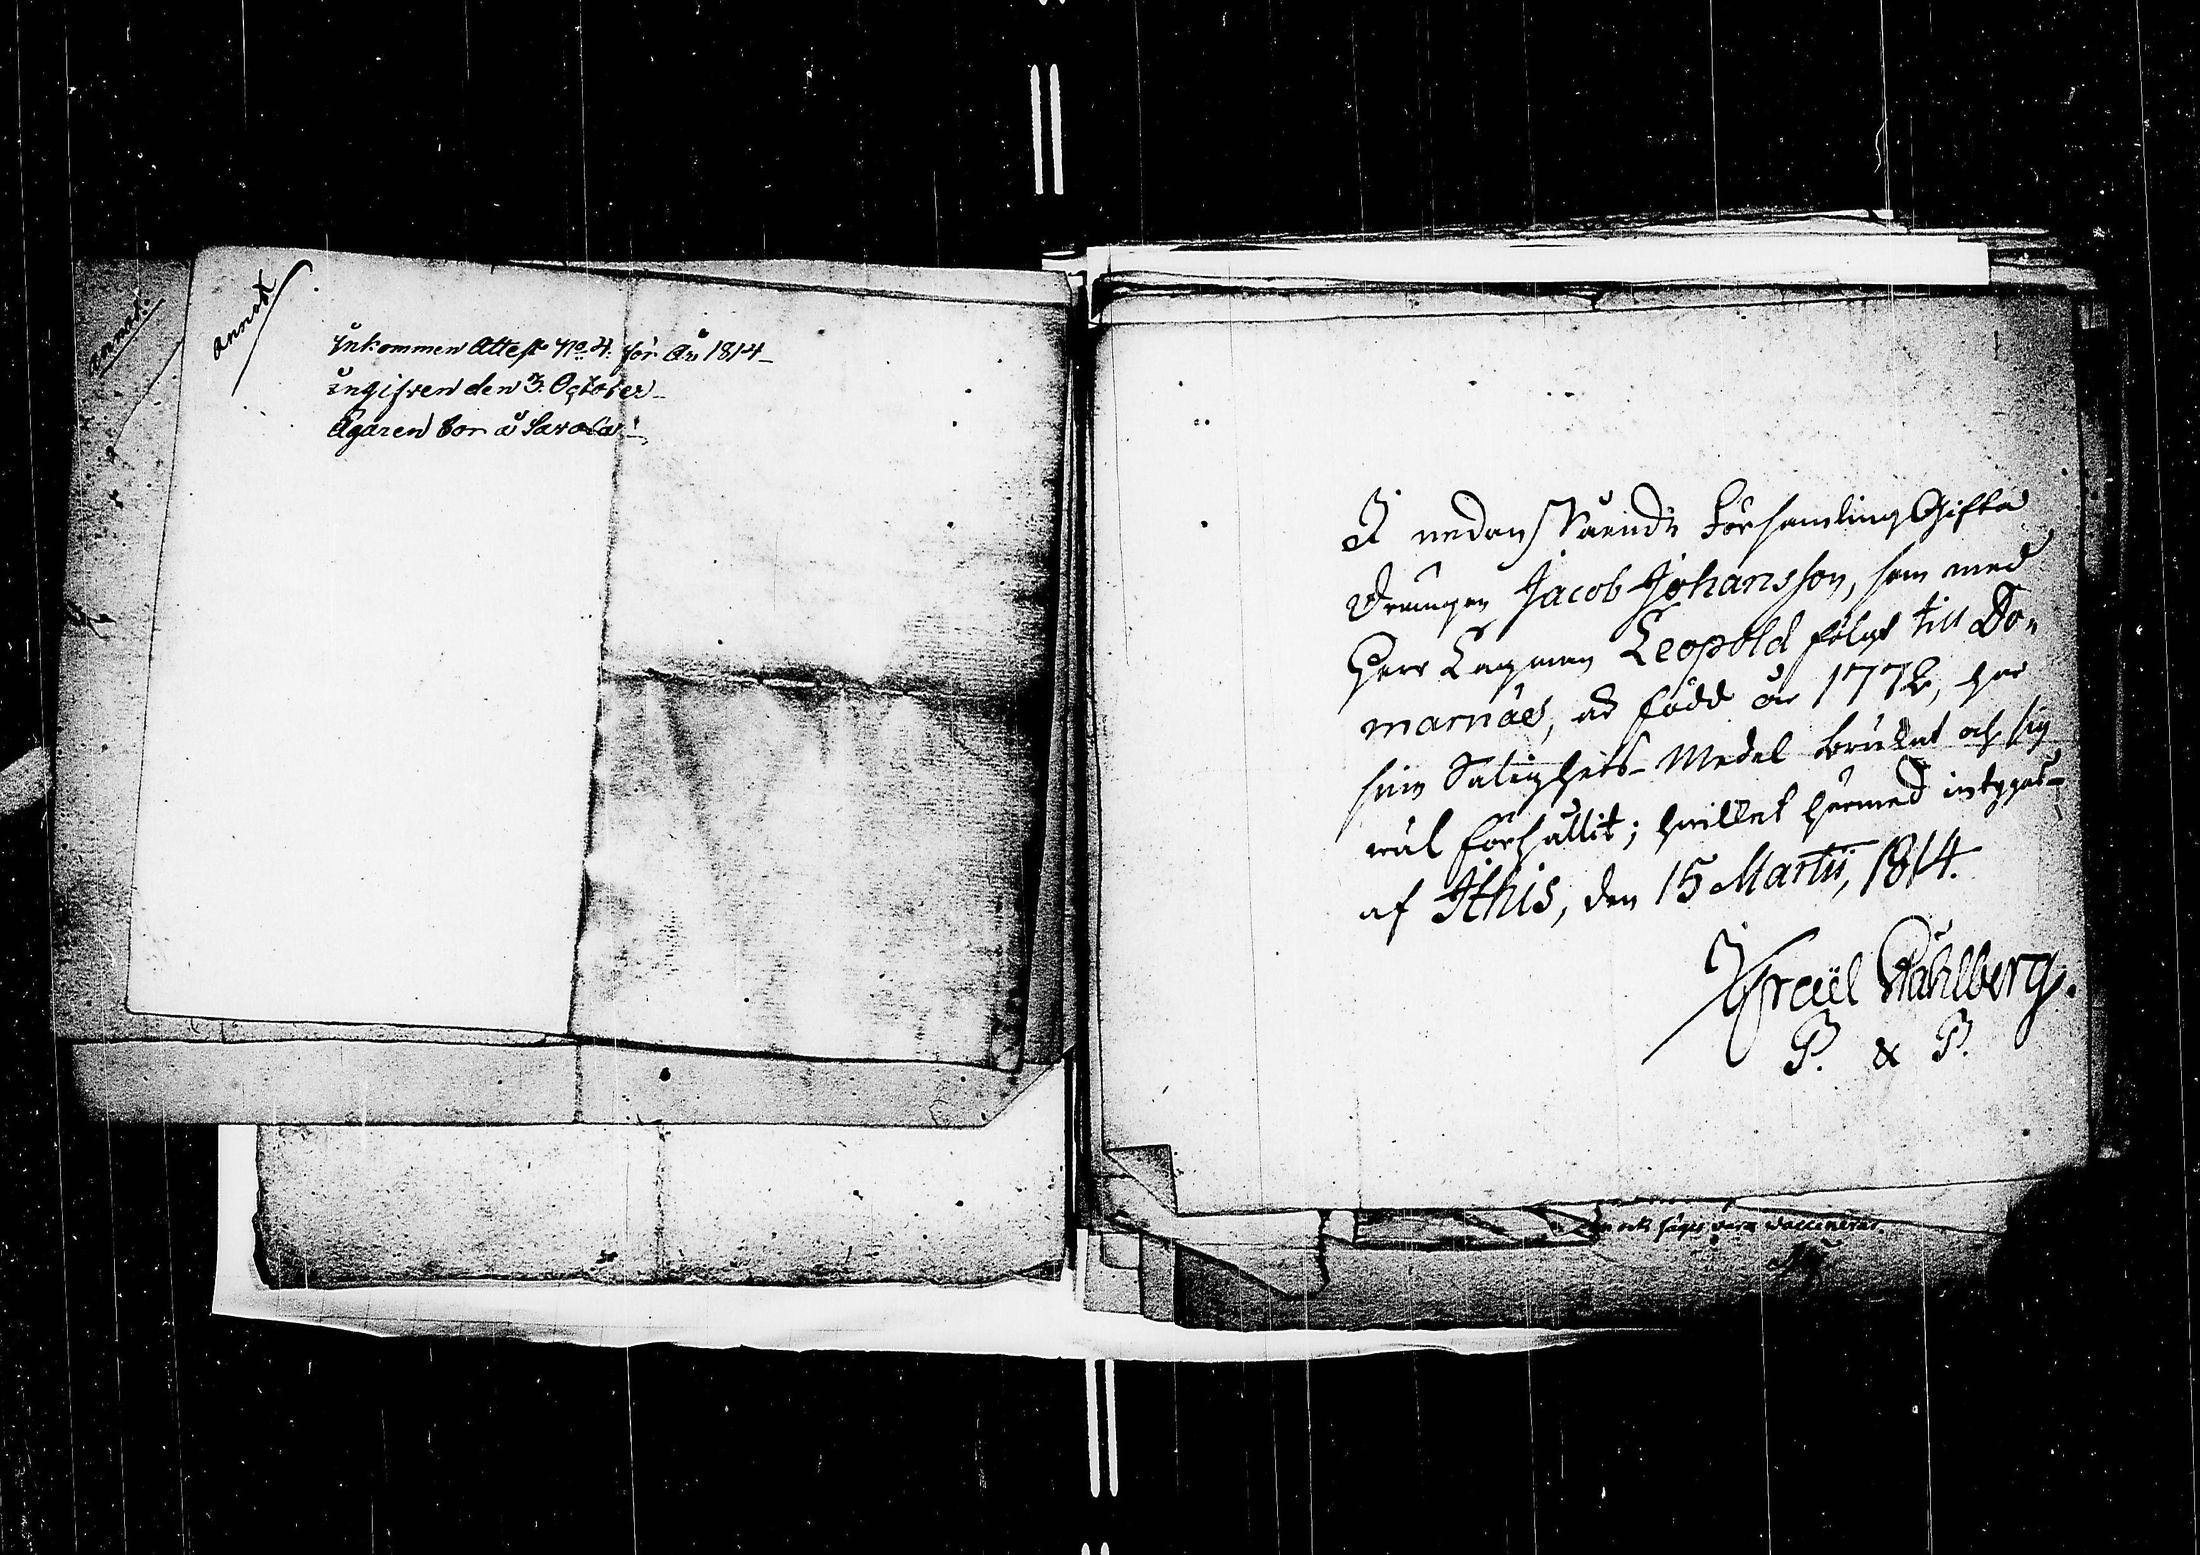 annot.
annot
Inkommen Attest No 4. för År 1814_
ingifven den 3. October_
Ägaren bor å Savola_
I nedanskrefvde Församling Gifta
Drängen Jacob Johansson, som med
Herr Lagman Leopold följt till Do„
marnäes, är född år 1772, har
sine Salighets-Medel brukat och sig
wäl förhållit; hwilket härmed intygas_
af Ithis, den 15 Martii, 1814.
Israël Wahlberg.
P. & P.
ock säges vara vaccinerad.